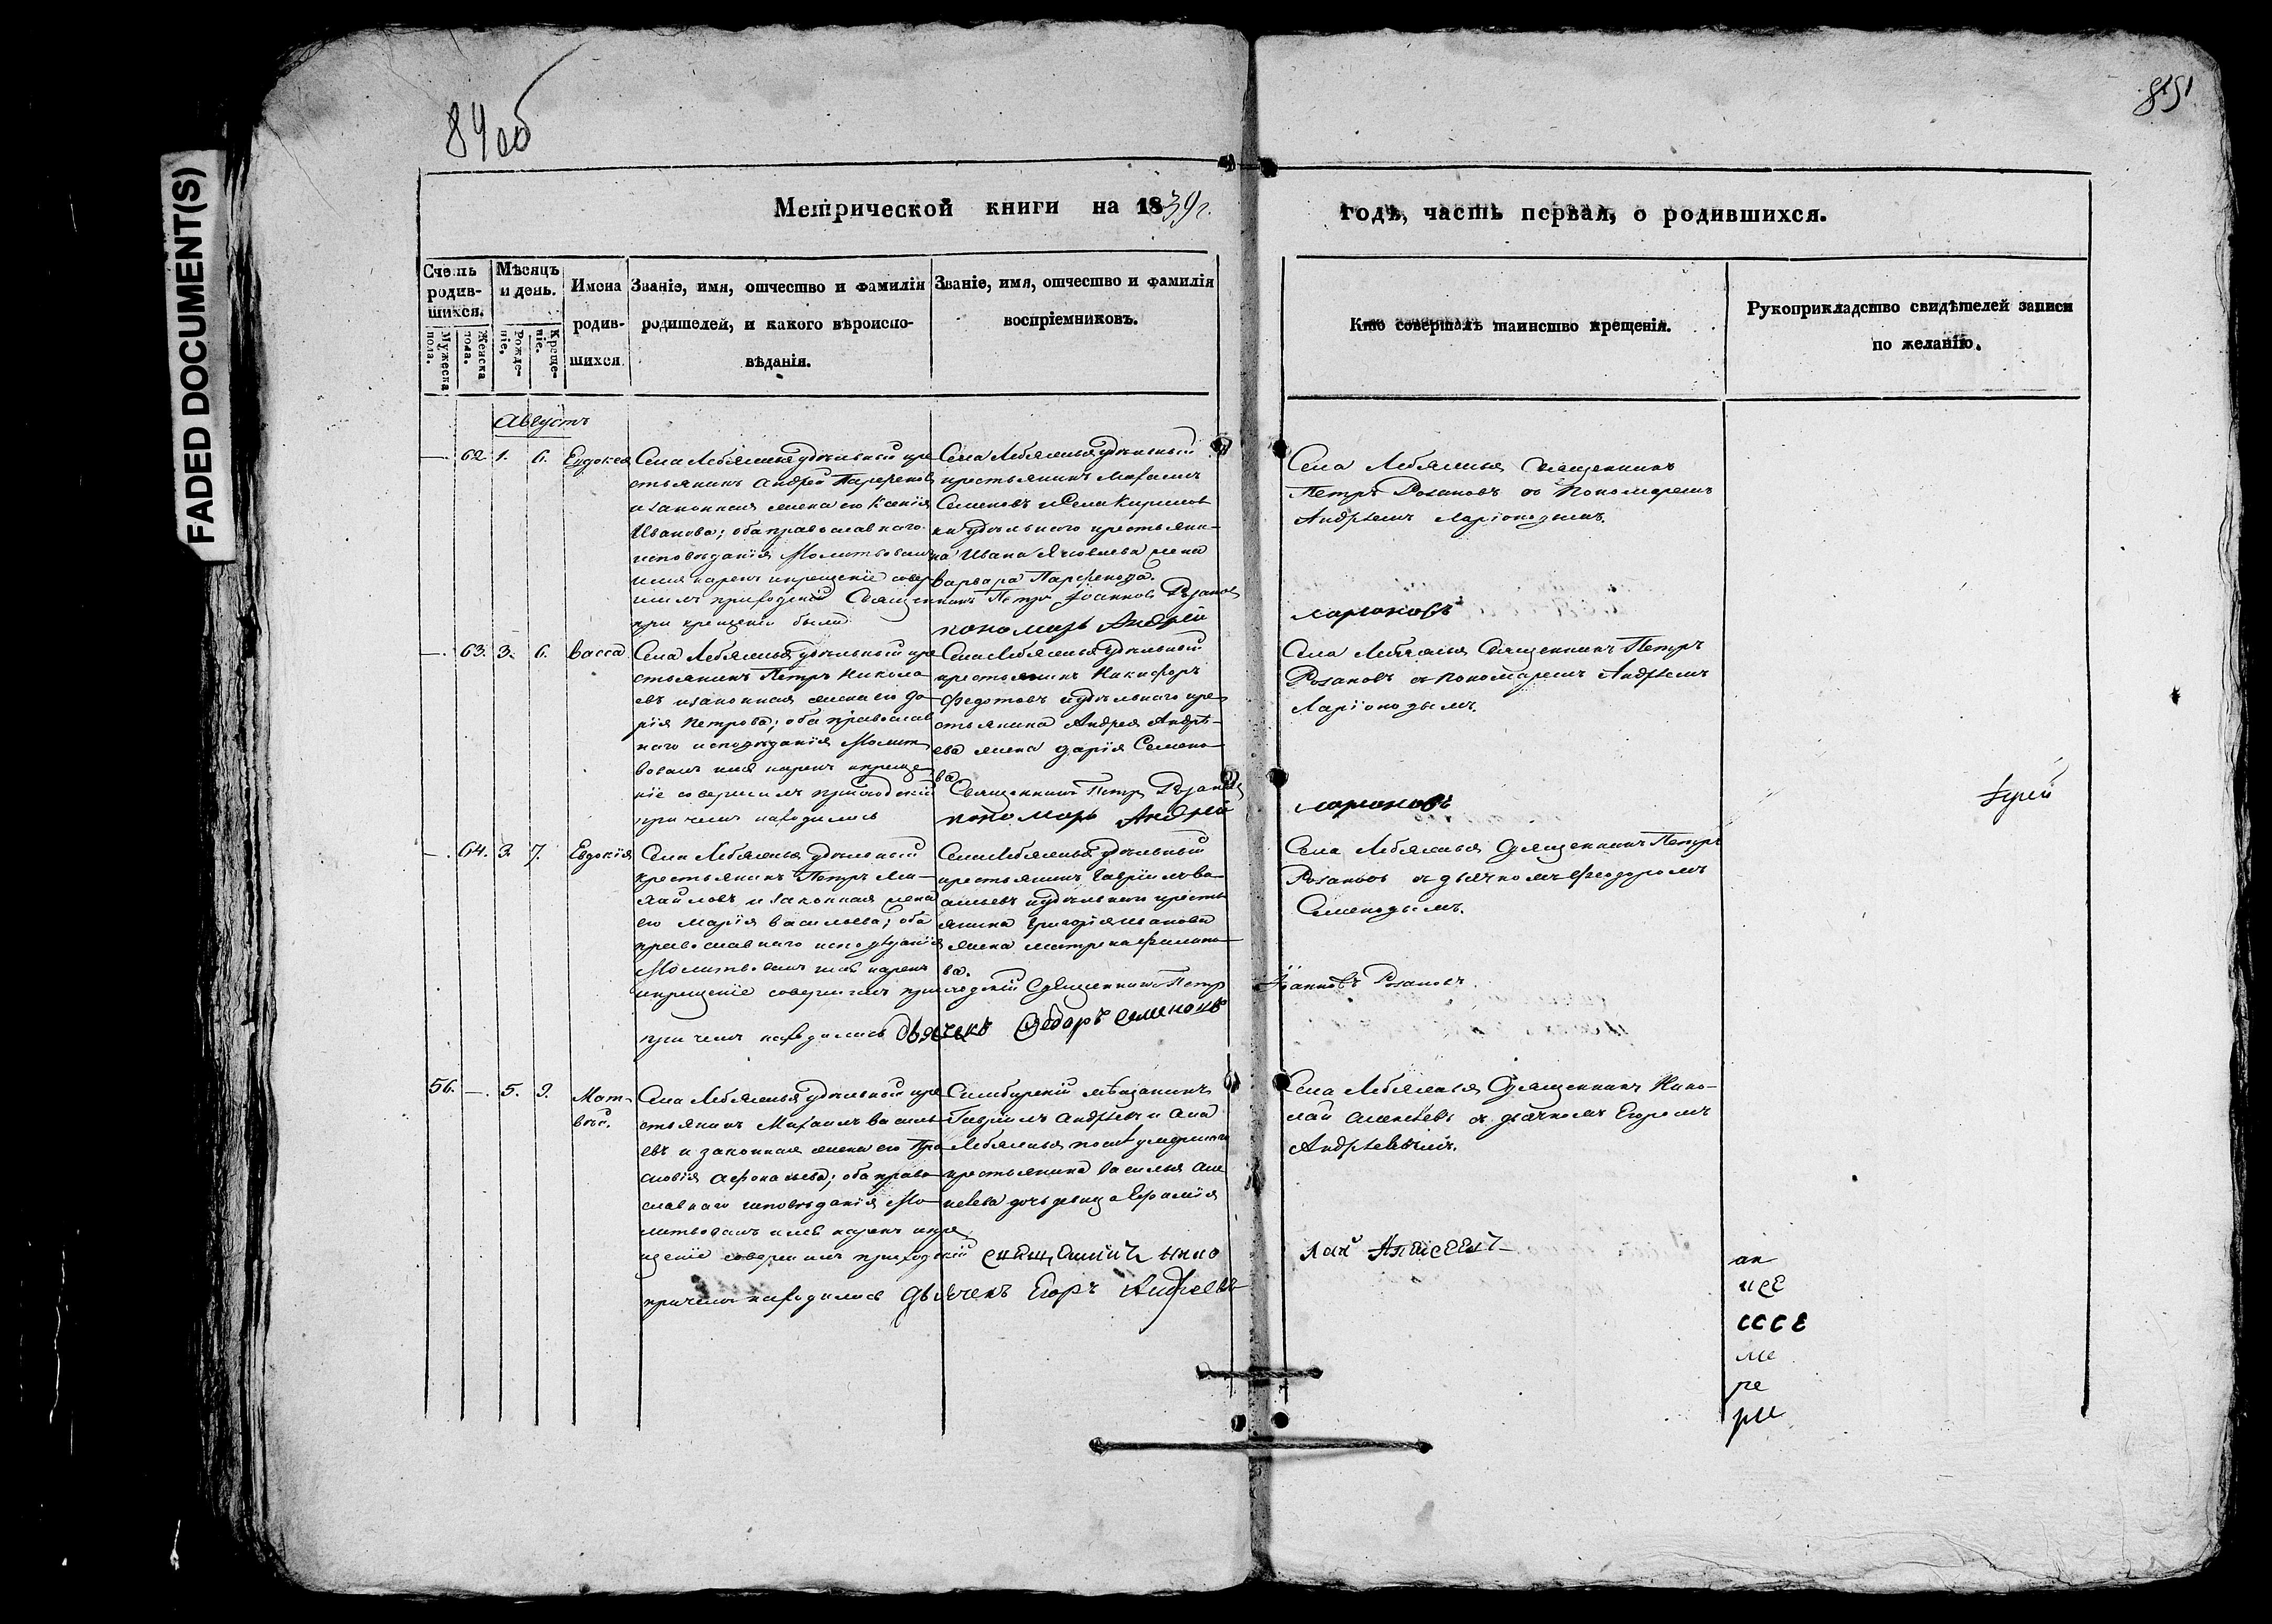 FADED DOCUMENT(S)
84об
851
Метрической книги на 1839г.
годъ, часть первая, о родившихся.
Счетъ родившихся.
Мужеска пола.
Женска пола.
Мѣсяцъ и день.
Рожденіе.
Крещеніе.
Имена родившихся
Званіе, имя, отчество и фамилія
родителей, и какого вѣроиспо-
вѣданія.
Званіе, имя, отчество и фамилія
воспріемниковъ.
Кто совершалъ таинство крещенія.
Рукоприкладство свидѣтелей записи
по желанію.
Августъ
—. 62. 1. 6. Евдокея
Села Лебяжья удѣльный кре
стьянинъ Андрей Парфеновъ
и законная жена его Ксенія
Иванова; оба православнаго
исповѣданія Молитвовалъ
имя нарекъ и крещеніе совер
шилъ приходскій Священникъ Петръ Іоанновъ Розановъ
при крещеніи были пономарь Андрей
Села Лебяжья удѣльный
крестьянинъ Михаилъ
Семеновъ и Села Кирилов
ки удѣльнаго крестьяни-
на Ивана Яковлева жена
Варвара Парфенова.
Села Лебяжья Священникъ
Петръ Розановъ съ Пономаремъ
Андреемъ Ларіоновымъ.
Ларионовъ
—. 63. 3. 6. Васса
Села Лебяжья удѣльный кре
стьянинъ Петръ Никола
евъ и законная жена его Да-
рія Петрова; оба православ
наго исповѣданія Молит
вовалъ имя нарекъ и креще
ніе совершилъ приходскій Священникъ Петръ Розановъ
при чемъ находились пономарь Андрей
Села Лебяжья удѣльный
крестьянинъ Никифоръ
Федотовъ и удѣльнаго кре
стьянина Андрея Андрѣ-
ева жена Дарія Семено-
ва
Села Лебяжья Священникъ Петръ
Розановъ съ Пономаремъ Андреемъ
Ларіоновымъ.
Ларионовъ
—. 64. 3. 7. Евдокія
Села Лебяжья удѣльный
крестьянинъ Петръ Ми-
хайловъ и законная жена
его Марія Васильева; оба
православнаго исповѣданія
Молитвовалъ имя нарекъ
и крещеніе совершилъ приходскій Священникъ Петръ
при чемъ находились дьячекъ Федоръ Семеновъ
Села Лебяжья удѣльный
крестьянинъ Гавріилъ Ва-
сильевъ и удѣльнаго кресть
янина Григорія Иванова
жена Матрена Филипо-
ва.
Села Лебяжья Священникъ Петръ
Розановъ съ дьячкомъ Феодоромъ
Семеновымъ.
Іоанновъ Розановъ.
56. —. 5. 9. Мат-
вѣй.
Села Лебяжья удѣльный кре
стьянинъ Михаилъ Василь
евъ и законная жена его Пра
сковія Афонасьева; оба право
славнаго исповѣданія Мо-
литвовалъ имя нарекъ и кре
щеніе совершилъ приходскій священникъ Нико
при чемъ находились дьячекъ Егоръ Андреевъ
Симбирскій мѣщанинъ
Гавріилъ Андрѣевъ и Села
Лебяжья послѣ умершаго
крестьянина Василья Але
ксѣева дочь девица Евфимія
Села Лебяжья Священникъ Нико-
лай Алексѣевъ съ дьячкомъ Егоромъ
Андрѣевымъ.
лай Алексеевъ